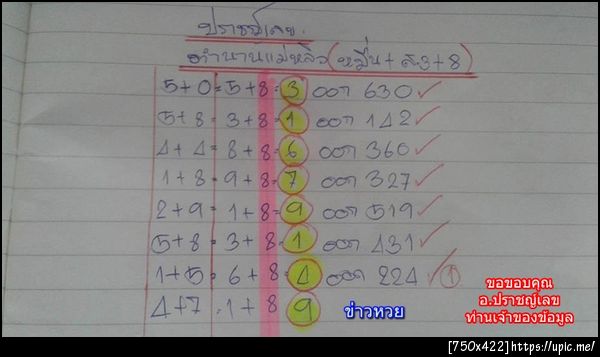 ปราชญ์เลข.
ตำนานแม่หลิว(หมื่น+ส.3+8)
5+0=5+8=3 ออก 630✓
5+8=3+8=1 ออก 142✓
4+4=8+8=6 ออก 360✓
1+8=9+8=7 ออก 327✓
2+9=1+8=9 ออก 519✓
5+8=3+8=1 ออก 431✓
1+5=6+8=4 ออก 224✓①
4+7.1+8 9
ข่าวหวย
ขอขอบคุณ
อ.ปราชญ์เลข
ท่านเจ้าของข้อมูล
[750x422]https://upic.me/